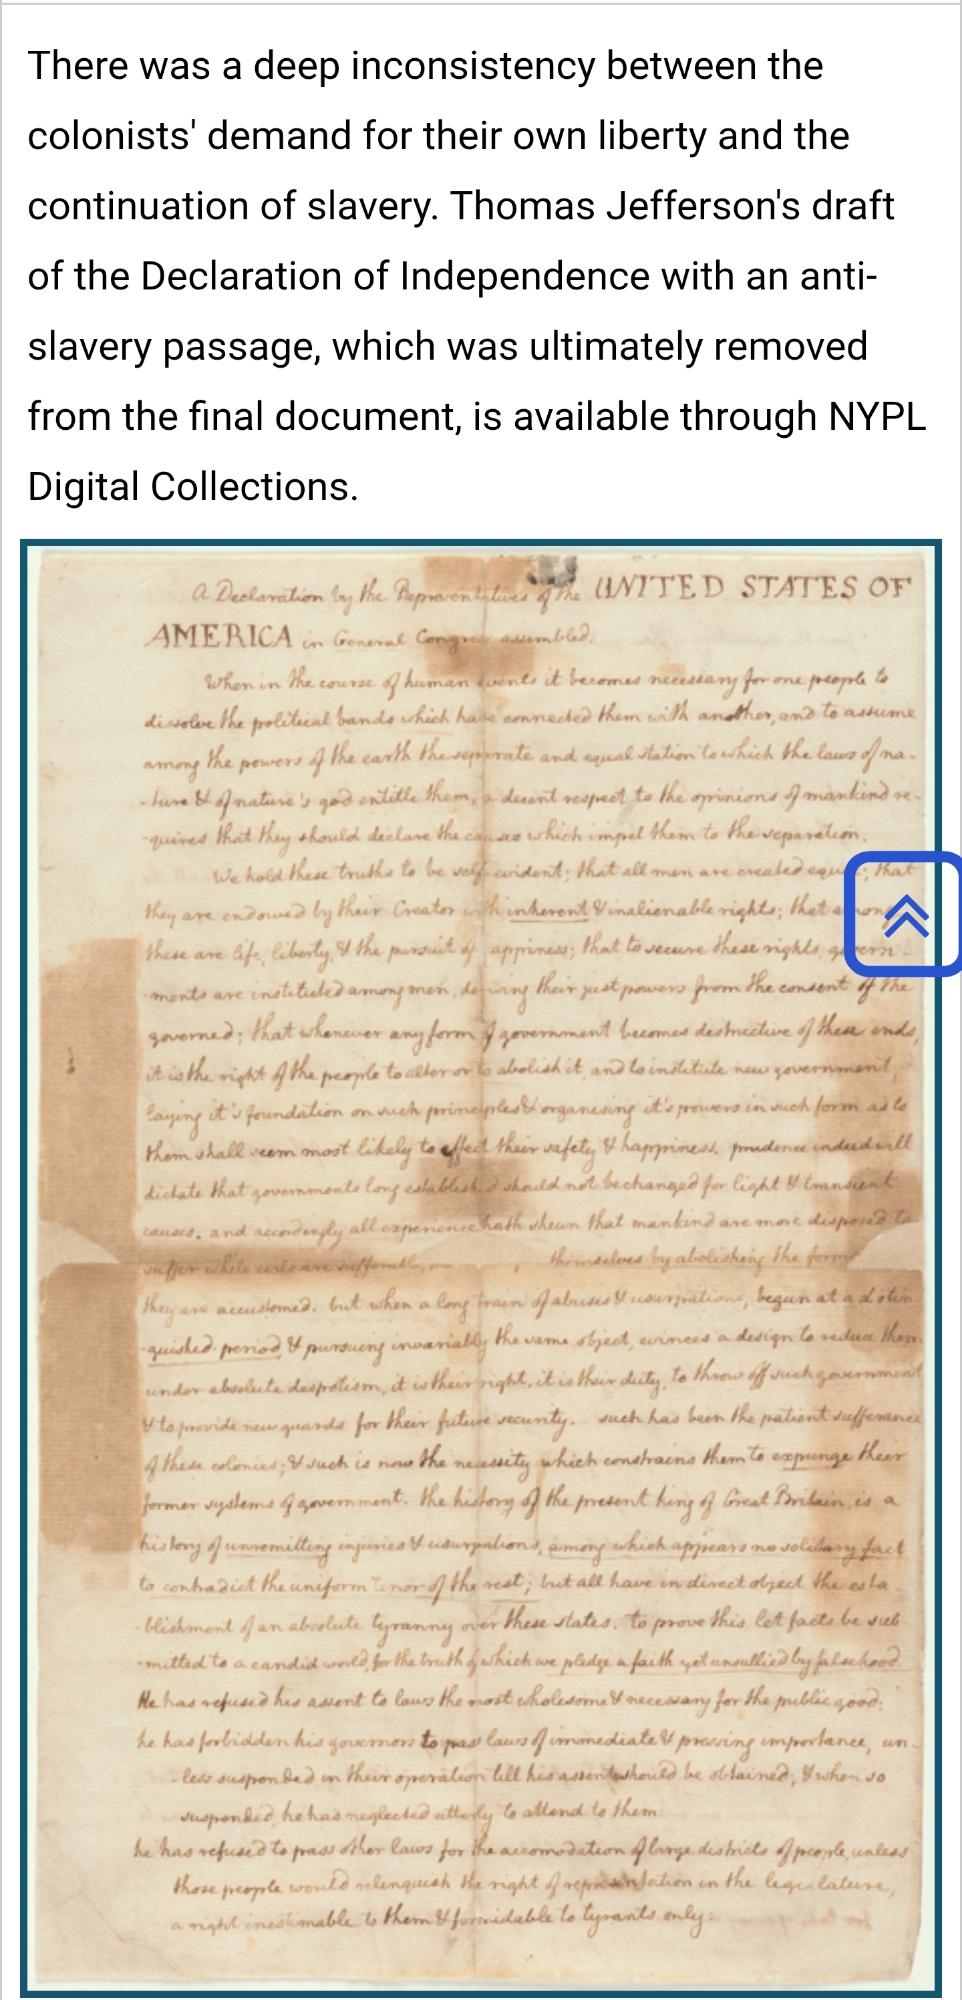 There was a deep inconsistency between the
colonists' demand for their own liberty and the
continuation of slavery. Thomas Jefferson's draft
of the Declaration of Independence with an anti-
slavery passage, which was ultimately removed
from the final document, is available through NYPL
Digital Collections.
A Declaration by the Representatives of the UNITED STATES OF
AMERICA in General Congress assembled.
When in the course of human events it becomes necessary for one people to
dissolve the political bands which have connected them with another, and to assume
among the powers of the earth the separate and equal station to which the laws of na-
-ture & of nature's god entitle them, a decent respect to the opinions of mankind re-
-quires that they should declare the causes which impel them to the separation.
We hold these truths to be self evident; that all men are created equal; that
they are endowed by their Creator with inherent & inalienable rights; that among
these are life, liberty, & the pursuit of happiness; that to secure these rights, govern-
-ments are instituted among men, deriving their just powers from the consent of the
governed; that whenever any form of government becomes destructive of these ends,
it is the right of the people to alter or to abolish it, and to institute new government,
laying it's foundation on such principles & organising it's powers in such form as to
them shall seem most likely to effect their safety & happiness. prudence indeed will
dictate that governments long established should not be changed for light & transient
causes. and accordingly all experience hath shewn that mankind are more disposed to
suffer while evils are sufferable, themselves by abolishing the forms
they are accustomed. but when a long train of abuses & usurpations, begun at a distin-
-guished period & pursuing invariably the same object, evinces a design to reduce them
under absolute despotism, it is their right, it is their duty, to throw off such government
& to provide new guards for their future security. such has been the patient sufferance
of these colonies; & such is now the necessity which constrains them to expunge their
former systems of government. the history of the present king of Great Britain, is a
history of unremitting injuries & usurpations, among which appears no solitary fact
to contradict the uniform tenor of the rest; but all have in direct object the esta-
-blishment of an absolute tyranny over these states. to prove this let facts be sub-
-mitted to a candid world, for the truth of which we pledge a faith yet unsullied by falsehood.
He has refused his assent to laws the most wholesome & necessary for the public good:
he has forbidden his governors to pass laws of immediate & pressing importance, un-
-less suspended in their operation till his assent should be obtained; & when so
suspended, he has neglected utterly to attend to them.
he has refused to pass other laws for the accomodation of large districts of people, unless
those people would relinquish the right of representation in the legislature,
a right inestimable to them & formidable to tyrants only: